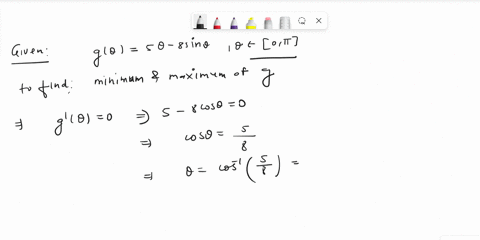 Given: g(θ) = 5θ - 8sinθ , θ ∈ [0,π]
to find: minimum & maximum of g
⇒ g'(θ) = 0 ⇒ 5 - 8cosθ = 0
⇒ cosθ = 5/8
⇒ θ = cos⁻¹(5/8) =